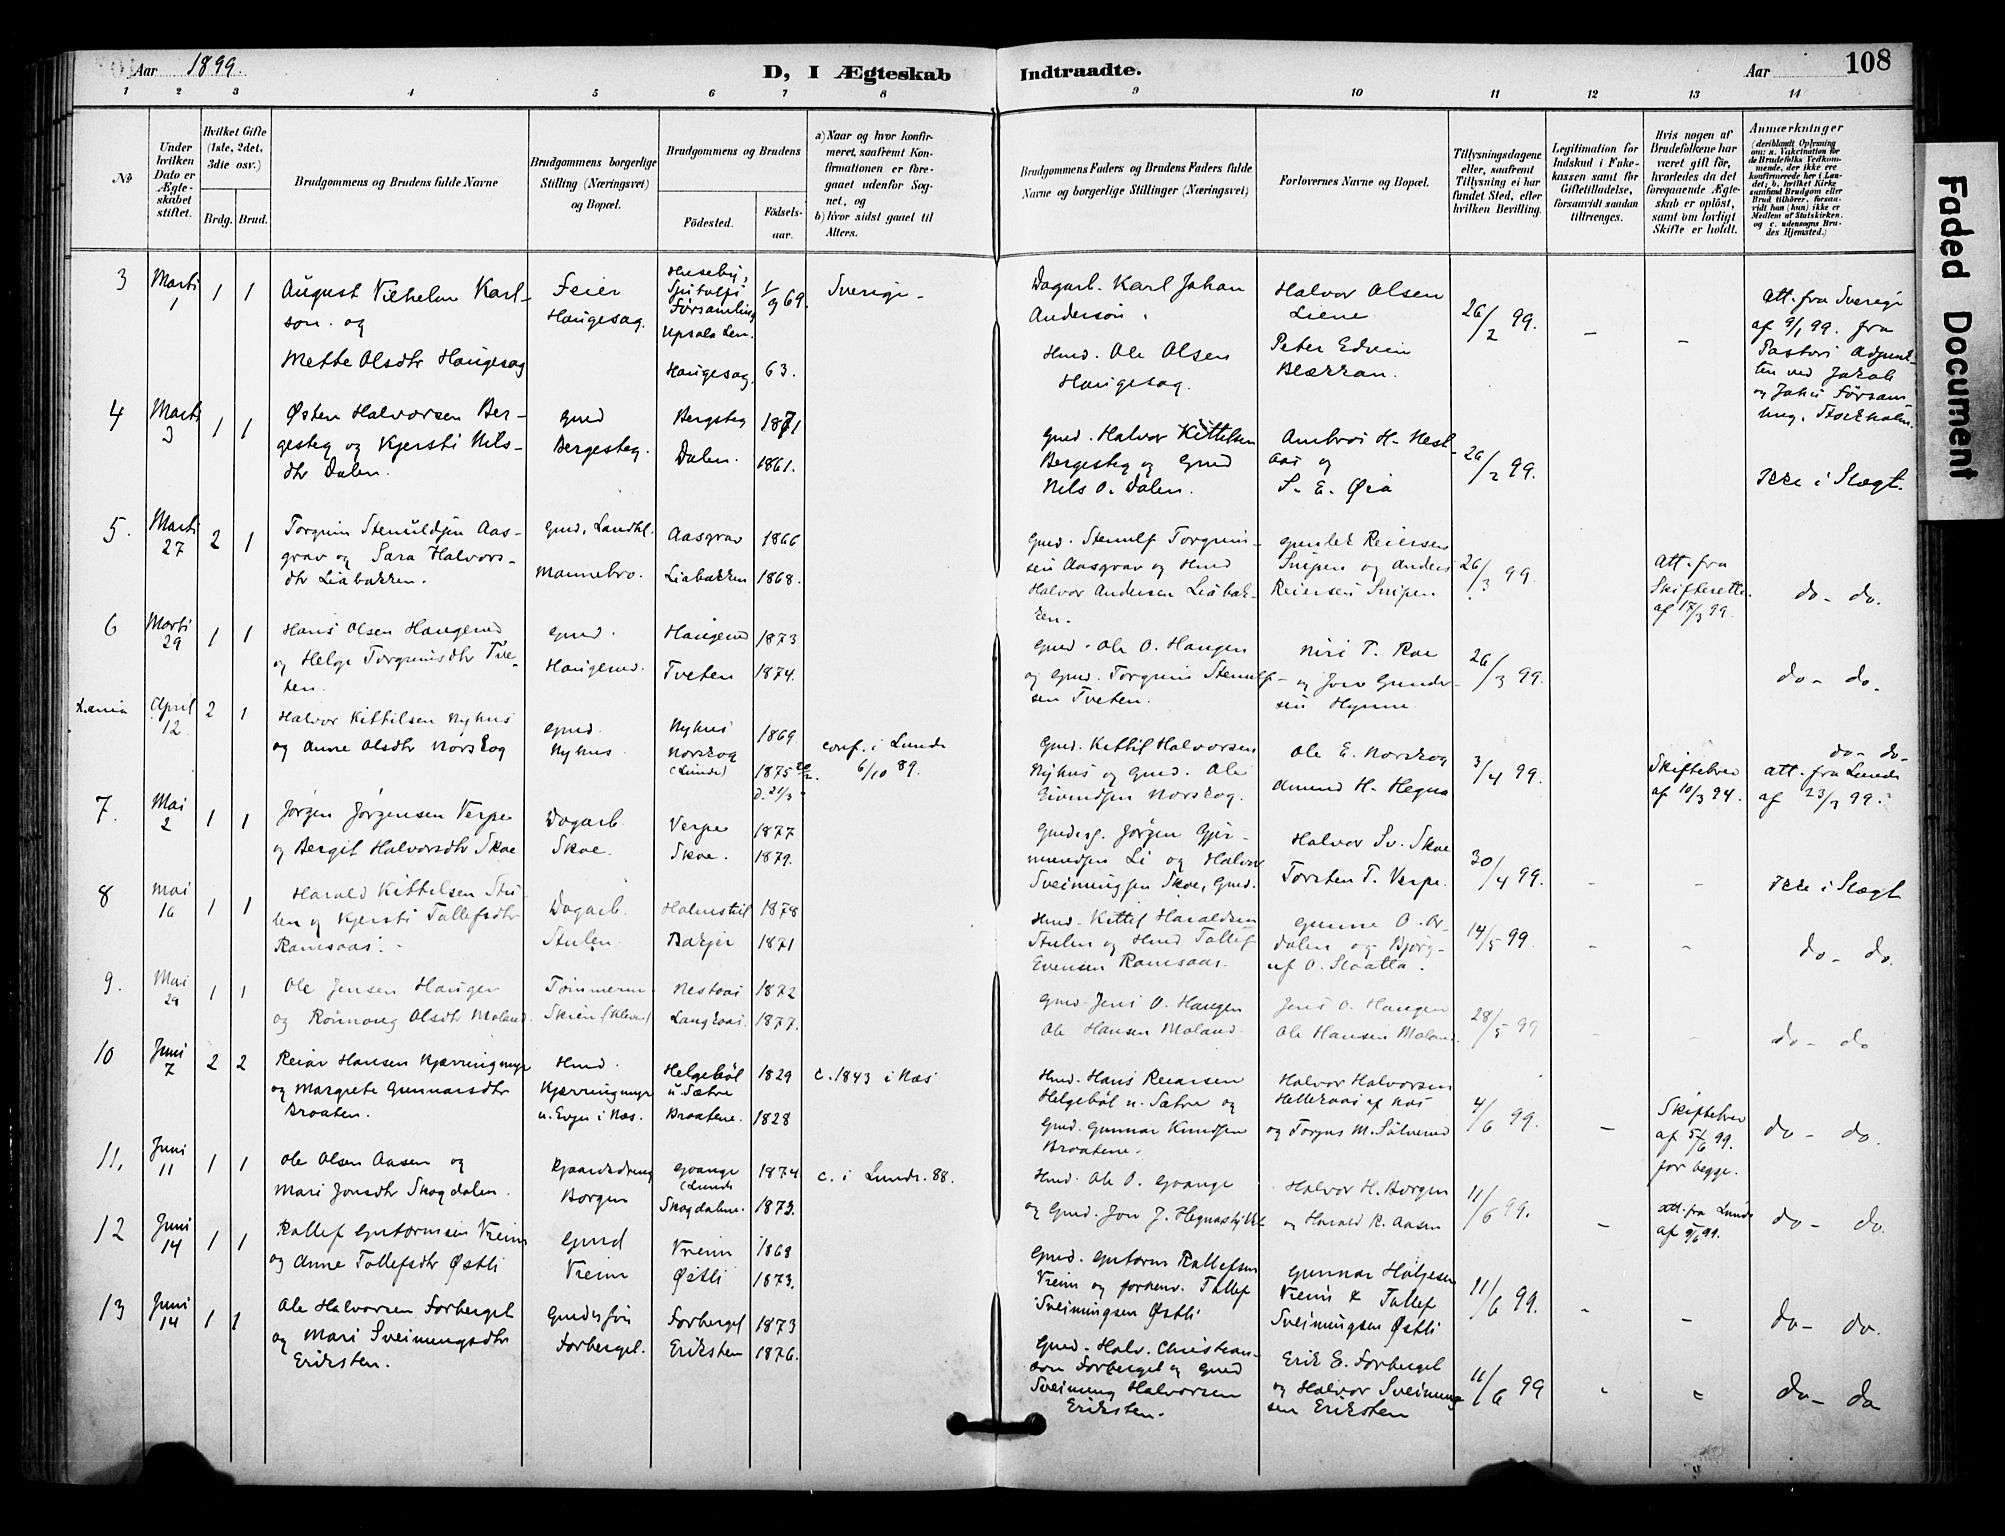 Aar 1899.
D, I Ægteskab Indtraadte.
Aar
108
Faded Document
1 2 3 4 5 6 7 8 9 10 11 12 13 14
No.
Under hvilken Dato er Ægteskabet stiftet.
Hvilket Gifte (1ste, 2det, 3die osv.)
Brdg. Brud.
Brudgommens og Brudens fulde Navne
Brudgommens borgerlige Stilling (Næringsvei) og Bopæl.
Brudgommens og Brudens
Fødested. Fødselsaar.
a) Naar og hvor konfirmeret, saafremt Konfirmationen er foregaaet udenfor Sognet, og
b) hvor sidst gaaet til Alters.
Brudgommens Faders og Brudens Faders fulde Navne og borgerlige Stillinger (Næringsvei)
Forlovernes Navne og Bopæl.
Tillysningsdagene eller, saafremt Tillysning ei har fundet Sted, efter hvilken Bevilling.
Legitimation for Indskud i Enkekassen samt for Giftetilladelse, forsaavidt saadan tiltrænges.
Hvis nogen af Brudefolkene har været gift før, hvorledes da det foregaaende Ægteskab er opløst, samt om lovligt Skifte er holdt.
Anmærkninger
(deriblandt Oplysning om: a. Vakcination for de Brudefolks Vedkommende, der ikke ere konfirmerede her i Landet; b. hvilket Kirkesamfund Brudgom eller Brud tilhører, forsaavidt han (hun) ikke er Medlem af Statskirken, og c. udensogns Brudes Hjemsted.)
3 Marts 1 1 1
August Vilhelm Karlson. og
Mette Olsdtr Haugesag
Feier
Haugesag.
Husebÿ,
Församling
Upsala Len.
Haugesag.
1/9 69.
63.
Sverige -
Dagarb. Karl Johan
Anderson.
Hmd. Ole Olsen
Haugesag.
Halvor Olsen
Liene
Peter Edvin
Blækkan.
26/2 99.
-
-
Att. fra Sverige
af 9/1 99. fra
Pastors Adjunkten ved Jakob
og Johs Församling, Stockholm.
4 Marts 3 1 1
Østen Halvorsen Bergesteg og Kjersti Nilsdtr Dalen.
Gmd
Bergesteg.
Bergsteg 1871
Dalen. 1861.
Gmd. Halvor Kittilsen
Bergesteg og Gmd
Nils O. Dalen.
Ambros H. Nestaas og
S. E. Øia
26/2 99.
Ikke i Slægt.
5. Marts 27 2 1
Torgrim Stenulfsen Aasgrav og Sara Halvorsdtr Liabakken.
Gmd, Landhl.
Mannebro.
Aasgrav 1866
Liabakken 1868.
Gmd. Stenulf Torgrimsen Aasgrav og Hmd
Halvor Andersen Liabakken.
Gunlek Reiersen
Snipen og Anders
Reiersen Snipen
26/3 99.
Att. fra
Skifteretten
af 17/3 99.
do- do.
6 Marts 29 1 1
Hans Olsen Haugerud
og Helge Torgrimsdtr Tveten.
Gmd.
Haugerud.
Haugerud 1873
Tveten 1874.
Gmd. Ole O. Haugen
og Gmd. Torgrim Stenulfsen Tveten.
Niri T. Roe
og Jon Gundersen Hynne
26/3 99.
do- do.
April 12 2 1
Halvor Kittilsen Nyhus
og Anne Olsdtr Norskog
Gmd.
Nyhus
Nyhus 1869
Norskog
(Lunde)
1875
d. 21/3
conf. i Lunde
6/10 89.
Gmd. Kittil Halvorsen
Nyhus og Gmd. Ole
Eivindsen Norskog.
Ole E. Norskog
Amund H. Hegna
3/4 99.
Skiftebrev
af 10/3 94.
do- do-
Att. fra Lunde
af 23/3 99.
7. Mai 2 1 1
Jørgen Jørgensen Verpe
og Bergit Halvorsdtr Skoe
Dagarb.
Skoe.
Verpe 1877
Skoe. 1879.
Gmdssg. Jørgen Gjermundsen Li og Halvor
Sveinungsen Skoe, Gmd.
Halvor Sv. Skoe
Torsten T. Verpe.
30/4 99.
-
-
Ikke i Slægt
8 Mai 16 1 1
Harald Kittilsen Stulen og Kjersti Tollefsdtr
Ramsaas.
Dagarb.
Stulen.
Holmstul 1878
Bakjer 1871
Hmd. Kittil Haraldsen
Stulen og Hmd Tollef
Evensen Ramsaas.
Gunne O. Ordalen og Bjørgulf O. Slaatta.
14/5 99.
-
-
do- do.
9. Mai 29 1 1
Ole Jensen Haugen
og Rønnaug Olsdtr Moland.
Tømmerm.
Skien (Kleven)
Nestaas 1872
Langkaas. 1877.
Gmd. Jens O. Haugen
Ole Hansen Moland.
Jens O. Haugen
Ole Hansen Moland.
28/5 99
-
-
do- do
10 Juni 7 2 2
Reiar Hansen Kjærringmyr
og Margrete Gunnarsdtr
Braaten.
Hmd.
Kjærringmyr
u. Evju i Næs.
Helgebøl
u. Sætre
1829
Braatene. 1828
c. 1843 i Næs
Hmd. Hans Reiersen
Helgebøl u. Sætre og
Gmd. Gunnar Knudsen
Braatene.
Halvor Halvorsen
Hellekaas af Næs
og Torgus M. Sølverud
4/6 99.
-
Skiftebrev
af 5/6 99.
for begge.
do- do.
11. Juni 11 1 1
Ole Olsen Aasen og
Mari Jonsdtr Skogdalen.
Gaardsdreng
Borgen
Gvaage
(Lunde
1874
Skogdalene. 1873.
c. i Lunde. 88.
Hmd. Ole O. Gvaage
og Gmd. Jon J. Hegnastykket
Halvor H. Borgen
og Harald R. Aasen
11/6 99.
-
Att. fra Lunde
af 9/6 99.
do- do.
12 Juni 14 1 1
Rollef Gutormsen Vreim
og Anne Tollefsdtr Østli
Gmd
Vreim
Vreim 1868
Østli 1873.
Gmd. Gutorm Rollefsen
Vreim og forhenv. Tollef
Sveinungsen Østli
Gunnar Holjesen
Vreim & Tollef
Sveinungsen Østli
11/6 99.
-
-
do- do.
13 Juni 14 1 1
Ole Halvorsen Forberget
og Mari Sveinungsdtr
Eriksten.
Gmdssøn
Forberget.
Forberget 1873
Eriksten 1876.
Gmd. Halv. Christianson Forberget og Gmd
Sveinung Halvorsen
Eriksten.
Erik E. Forberget
og Halvor Sveinungsen Eriksten
11/6 99
-
-
do- do